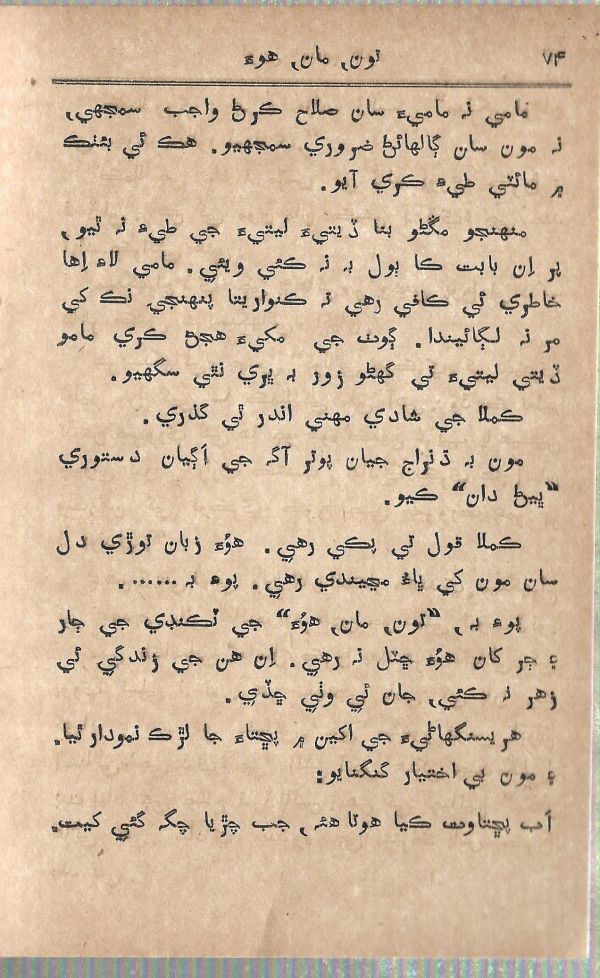 ۷۴ تون, مان, هوءَ
مامي نہ ماميءَ سان صلاح ڪرڻ واجب سمجهي,
نہ مون سان ڳالهائڻ ضروري سمجهيو. هڪ ئي بئٺڪ
۾ مائٽي طيءِ ڪري آيو.
منهنجو مڱڻو بنا ڏيتيءَ ليتيءَ جي طيءِ نہ ٿيو,
پر اِن بابت ڪا ٻول بہ نہ ڪئي ويئي. مامي لاءِ اِها
خاطري ئي ڪافي رهي تہ ڪنواريتا پنهنجي نڪ کي
مر نہ لڳائيندا. ڳوٺ جي مکيءَ هجڻ ڪري مامو
ڏيتي ليتيءَ تي گهڻو زور بہ ڀري نٿي سگهيو.
ڪملا جي شادي مهني اندر ئي گذري.
مون بہ ڌنراج جيان پوتر آگہ جي اَڳيان دستوري
”ڀيڻ دان“ ڪيو.
ڪملا قول تي پڪي رهي. هوُءَ زبان توڙي دل
سان مون کي ڀاءُ مڃيندي رهي. پوءِ بہ .......
پوءِ بہ, ”تون, مان, هوُءَ“ جي ٽڪنڊي جي ڄار
۽ ڄر کان هوُءَ ڇٽل نہ رهي. اِن هن جي زندگي ئي
زهر نہ ڪئي, جان ئي وٺي ڇڏي.
هر بسنگهاڻيءَ جي اکين ۾ پڇتاءَ جا لڙڪ نمودار ٿيا.
۽ مون بي اختيار گنگنايو:
اَب پڇتاوت ڪيا هوتا هئہ, جب چڙيا چگہ گئي کيت.